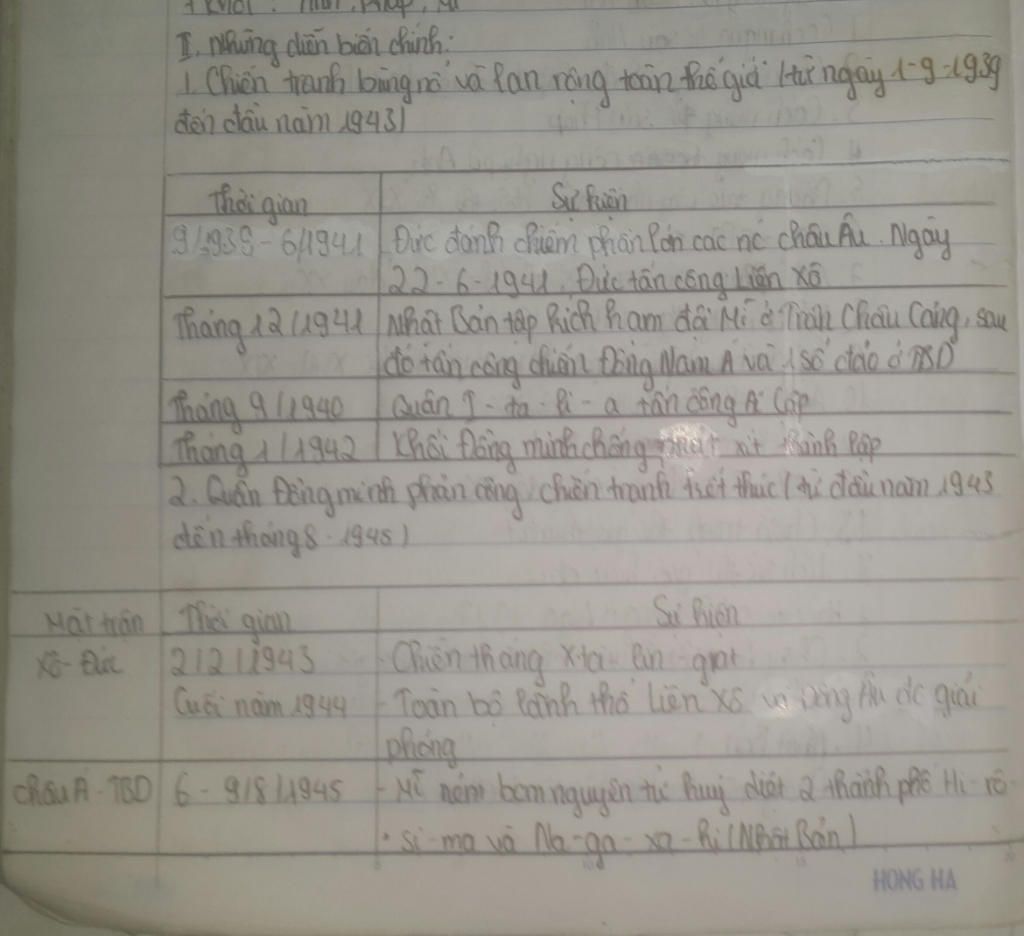 II. Những diễn biến chính:
1. Chiến tranh bùng nổ và lan rộng toàn thế giới (từ ngày 1-9-1939
đến đầu năm 1943)
Thời gian Sự kiện
9/1939 - 6/1941 Đức đánh chiếm phần lớn các nc châu Âu. Ngày
22-6-1941, Đức tấn công Liên Xô
Tháng 12/1941 Nhật Bản tập kích hạm đội Mĩ ở Trân Châu Cảng, sau
đó tấn công chiếm Đông Nam Á và 1 số đảo ở TBD
Tháng 9/1940 Quân I-ta-li-a tấn công Ai Cập
Tháng 1/1942 Khối Đồng minh chống phát xít thành lập
2. Quân Đồng minh phản công, chiến tranh kết thúc (từ đầu năm 1943
đến tháng 8-1945)
Mặt trận Thời gian Sự kiện
Xô-Đức 2/2/1943 - Chiến thắng X-ta-lin-grat
Cuối năm 1944 - Toàn bộ lãnh thổ Liên Xô và Đông Âu đc giải
phóng
Châu Á - TBD 6 - 9/8/1945 - Mĩ ném bom nguyên tử huỷ diệt 2 thành phố Hi-rô-
si-ma và Na-ga-xa-ki (Nhật Bản)
HONG HA